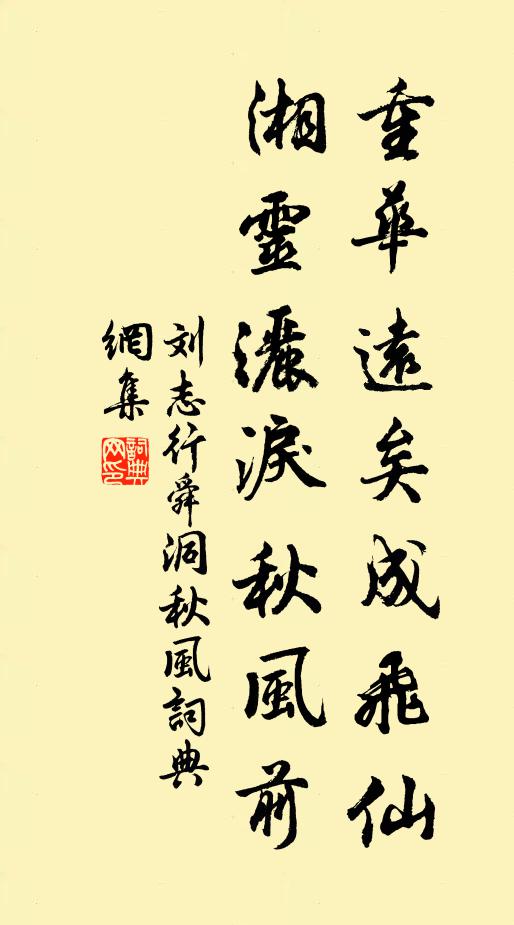 重華遠矣成飛仙
湘靈灑淚秋風前
刘志行舜洞秋風詞典
網集
詞典
网印